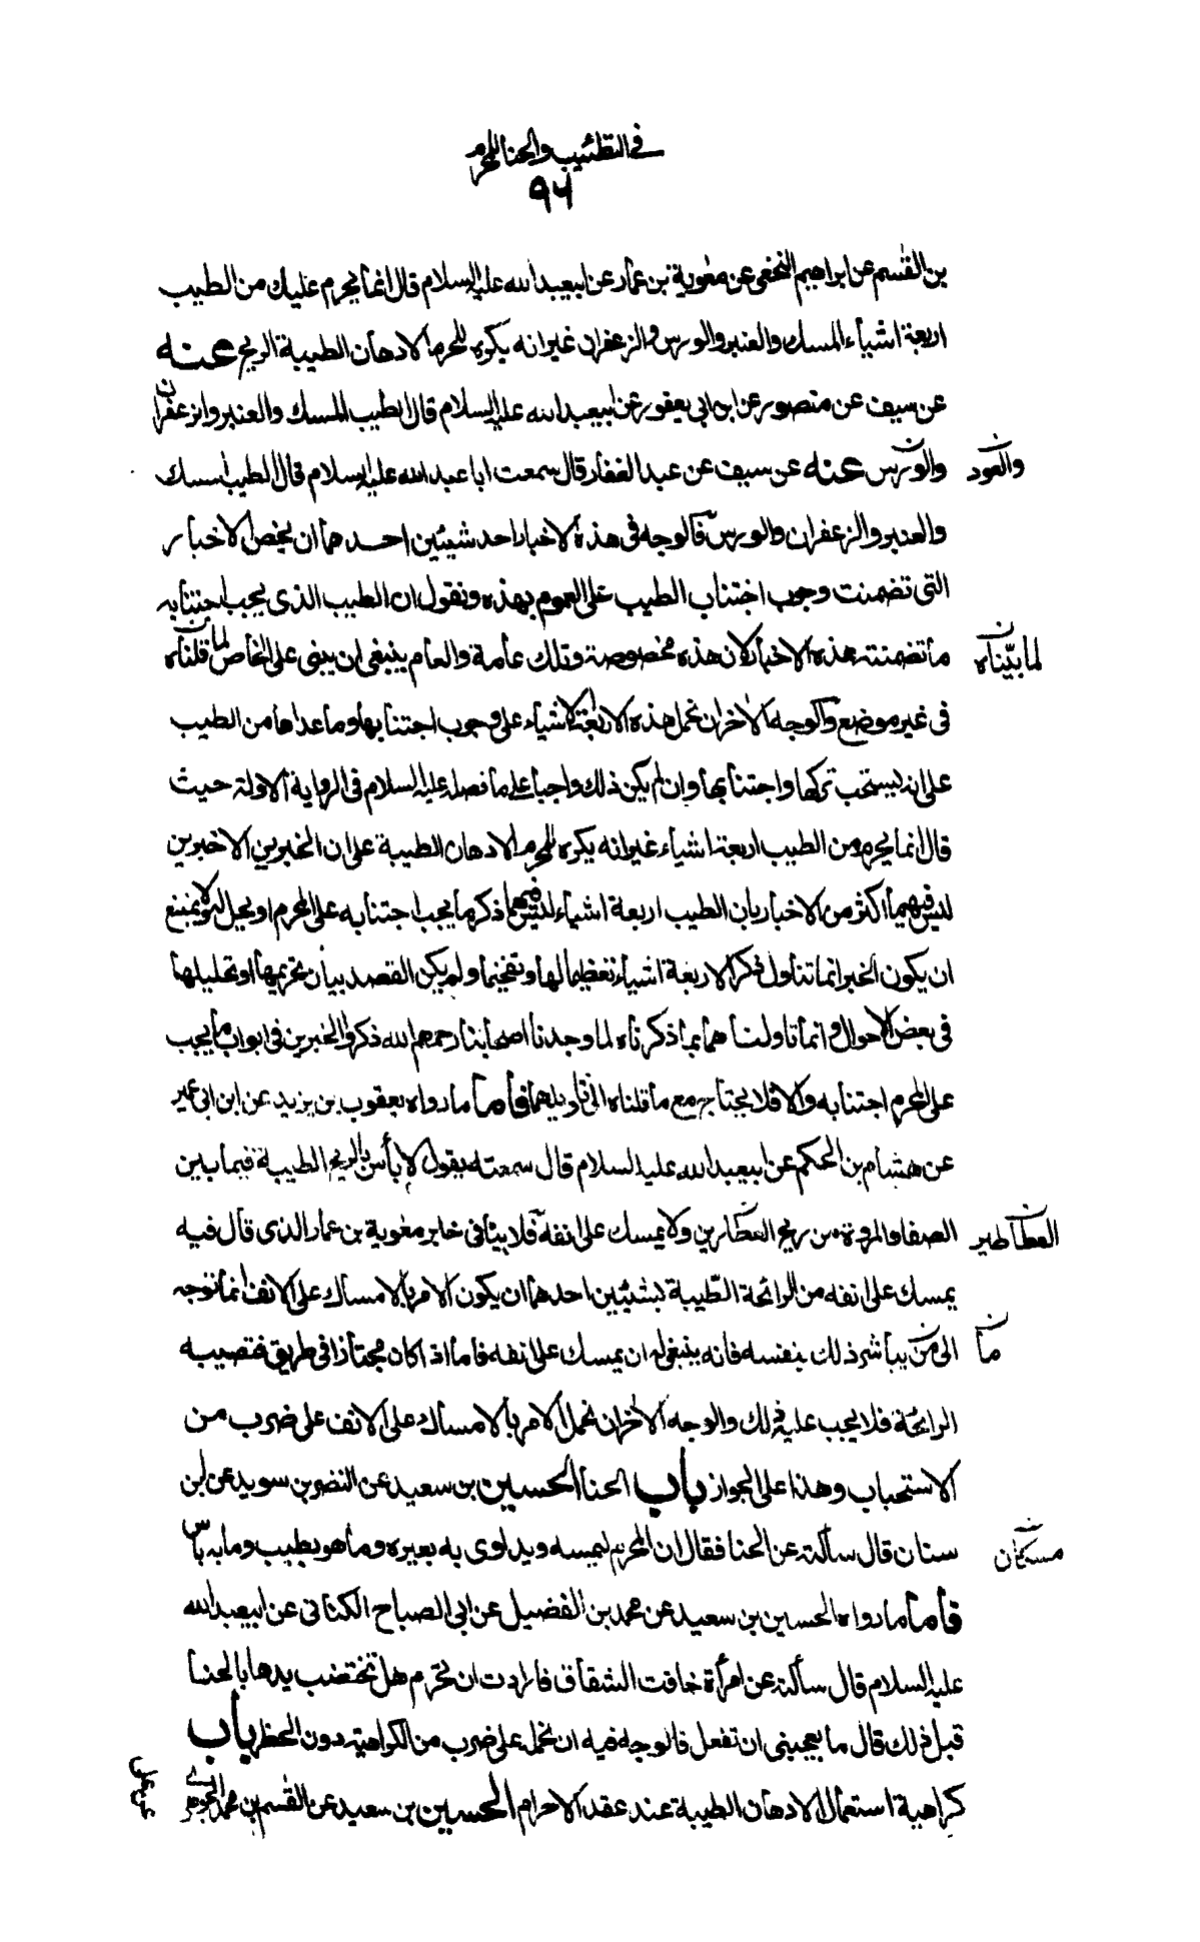 في التطئيب والحنا للمحرم
٩٦
بن القسم عن ابراهيم النخعي عن معوية بن عمار عن ابيعبد الله عليه السلام قال انما يحرم عليك من الطيب
اربعة اشياء المسك والعنبر والورس والزعفران غير انه يكره للمحرم الادهان الطيبة الريح عنه
عن سيف عن منصور عن ابن ابي يعفور عن ابيعبد الله عليه السلام قال الطيب المسك والعنبر والزعفران
والورس عنه عن سيف عن عبد الغفار قال سمعت ابا عبد الله عليه السلام قال الطيب المسك
والعود
والعنبر والزعفران والورس فالوجه في هذه الاخبار احد شيئين احدهما ان يخص الاخبار
التي تضمنت وجوب اجتناب الطيب على العموم بهذه ونقول ان الطيب الذي يجب اجتنابه
ما تضمنته هذه الاخبار لان هذه مخصوصة وتلك عامة والعام ينبغي ان يبنى على الخاص لما قلناه
لما بيناه
في غير موضع والوجه الاخر ان نحمل هذه الاربعة الاشياء على وجوب اجتنابها وما عداها من الطيب
على انه يستحب تركها واجتنابها وان لم يكن ذلك واجبا على ما فصله عليه السلام في الرواية الاولة حيث
قال انما يحرم من الطيب اربعة اشياء غير انه يكره للمحرم الادهان الطيبة على ان الخبرين الاخيرين
ليس فيهما اكثر من الاخبار بان الطيب اربعة اشياء ليس فيهما ذكر ما يجب اجتنابه على المحرم او يحل له ولا يمتنع
ان يكون الخبر انما تناول ذكر الاربعة اشياء تعظيما لها وتفخيما ولم يكن القصد بيان تحريمها او تحليلها
في بعض الاحوال وانما تاولنا هما بما ذكرناه لما وجدنا اصحابنا رحمهم الله ذكروا الخبرين في ابواب ما يجب
على المحرم اجتنابه والا فلا يحتاج مع ما قلناه الى تاويلهما فاما ما رواه يعقوب بن يزيد عن ابن ابي عمير
عن هشام بن الحكم عن ابيعبد الله عليه السلام قال سمعته يقول لا بأس بالريح الطيبة فيما بين
الصفا والمروة من ريح العطارين ولا يمسك على انفه فلا ينافي خبر معوية بن عمار الذي قال فيه
العطاطير
يمسك على انفه من الرائحة الطيبة لشيئين احدهما ان يكون الامر بالامساك على الانف انما توجه
الى من يباشر ذلك بنفسه فانه ينبغي له ان يمسك على انفه فاما اذا كان مجتازا في طريق فتصيبه
ما
الرائحة فلا يجب عليه ذلك والوجه الاخر ان نحمل الامر بالامساك على الانف على ضرب من
الاستحباب وهذا على الجواز باب الحنا الحسين بن سعيد عن النضر بن سويد عن ابن
سنان قال سألته عن الحنا فقال ان المحرم ليمسه ويداوى به بعيره وما هو بطيب وما به باس
مسكان
فاما ما رواه الحسين بن سعيد عن محمد بن الفضيل عن ابي الصباح الكناني عن ابيعبد الله
عليه السلام قال سألته عن امرأة خافت الشقاق فارادت ان تحرم هل تختضب يدها بالحنا
قبل ذلك قال ما يعجبني ان تفعل فالوجه فيه ان نحمل على ضرب من الكراهية دون الحظر باب
كراهية استعمال الادهان الطيبة عند عقد الاحرام الحسين بن سعيد عن القسم بن محمد الجوهري
عن علي